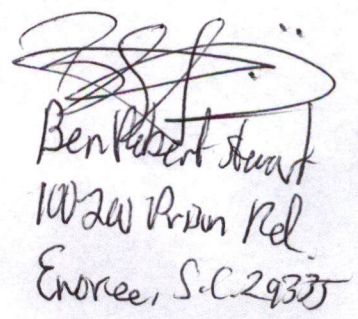 Ben Robert Stuart
100-200 Prison Rd.
Enoree, S.C. 29335